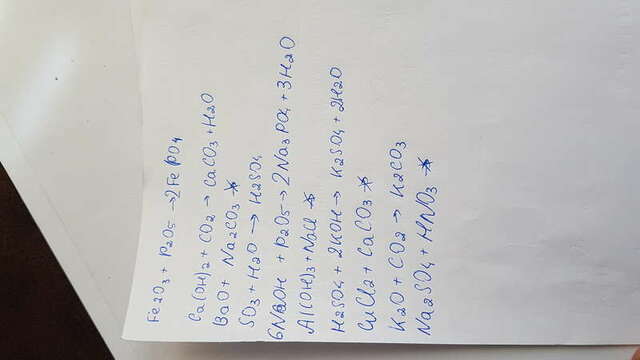 Fe2O3 + P2O5 → 2FePO4
Ca(OH)2 + CO2 → CaCO3 + H2O
BaO + Na2CO3 ↛
SO3 + H2O → H2SO4
6NaOH + P2O5 → 2Na3PO4 + 3H2O
Al(OH)3 + NaCl ↛
H2SO4 + 2KOH → K2SO4 + 2H2O
CuCl2 + CaCO3 ↛
K2O + CO2 → K2CO3
Na2SO4 + HNO3 ↛